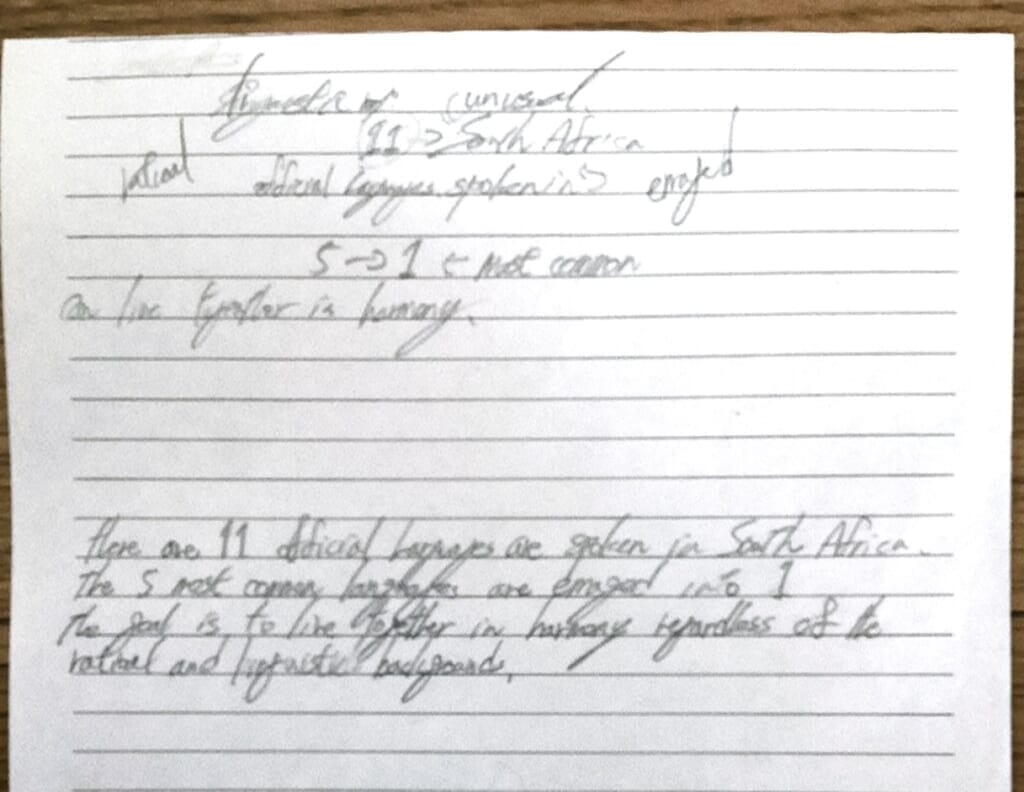 unusual.
11 → South Africa
official languages spoken in →
5 → 1 ← most common
live together in harmony.
There are 11 official languages are spoken in South Africa.
The 5 most common languages are emaged into 1
The goal is to live together in harmony regardless of the
ratioal and linguistic backgrounds.